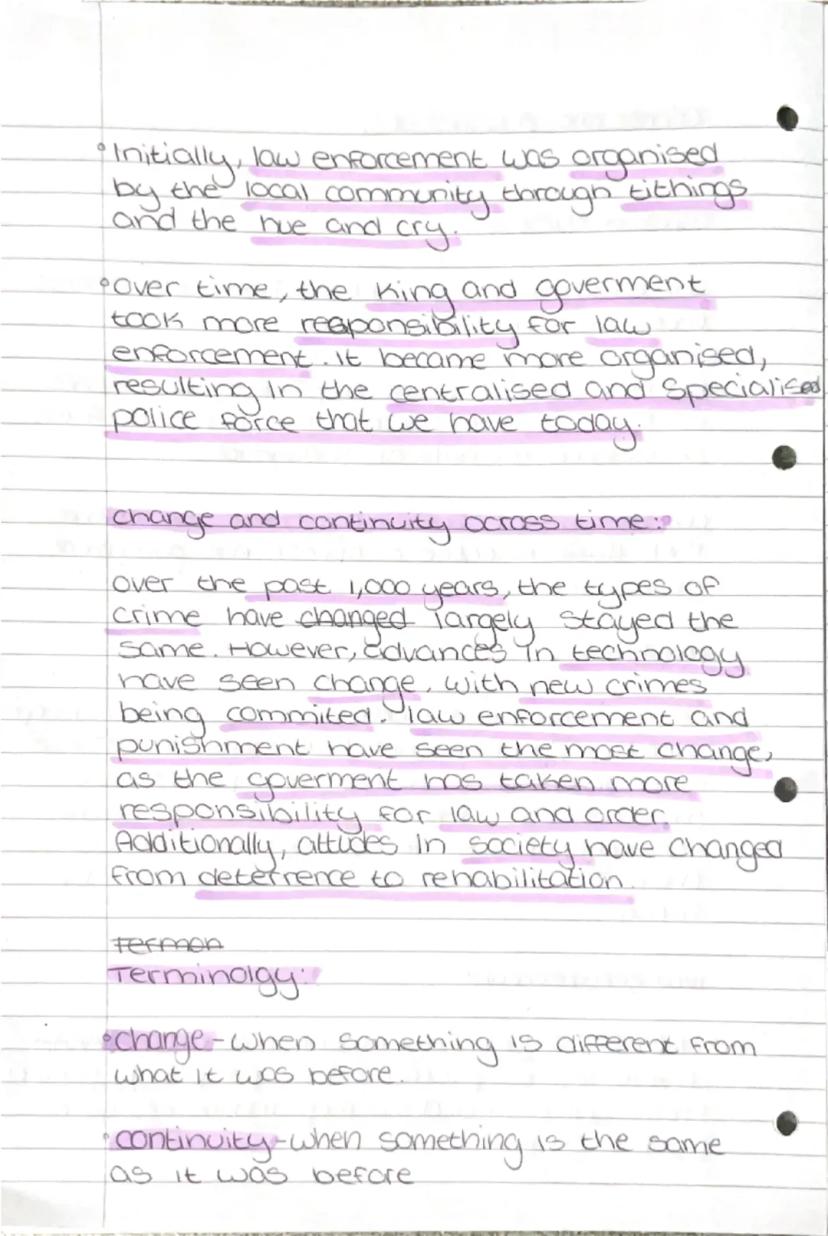 •Initially, law enforcement was organised
by the local community through tithings
and the hue and cry.
•over time, the King and goverment
took more responsibility for law
enforcement. It became more organised,
resulting in the centralised and specialised
police force that we have today.
change and continuity across time:
over the past 1,000 years, the types of
crime have changed largely stayed the
same. However, advances in technology
have seen change, with new crimes
being commited. law enforcement and
punishment have seen the most change,
as the goverment has taken more
responsibility for law and order.
Additionally, attiudes in society have changed
from deterrence to rehabilitation.
Termon
Terminolgy:
•change - when something is different from
what it was before.
•continuity - when something is the same
as it was before